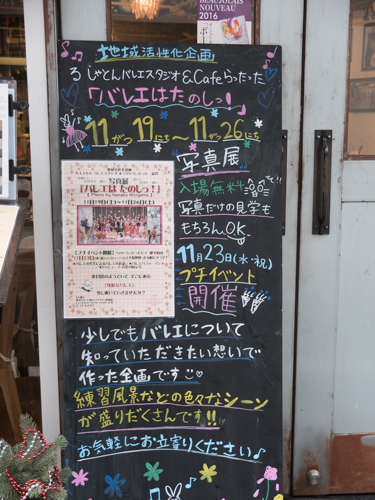 BEAUJOLAIS
NOUVEAU
2016
地域活性化企画
る じゃとんバレエスタジオ&Cafeらったった
「バレエはたのしっ!」
11がつ19にち〜11がつ26にち
写真展
入場無料
写真だけの見学も
もちろんOK
11月23日(水・祝)
プチイベント
開催
写真展
『バレエは たのしっ!』
11月19日(土)〜11月26日(土)
少しでもバレエについて
知っていただきたい想いで
作った企画です
練習風景などの色々なシーン
が盛りだくさんです!!
お気軽にお立寄りください♪